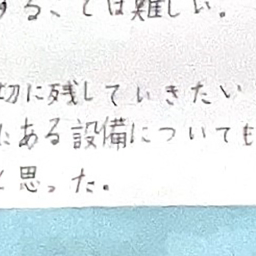 する、ては難しい。
切に残していきたい
にある設備についても
と思った。